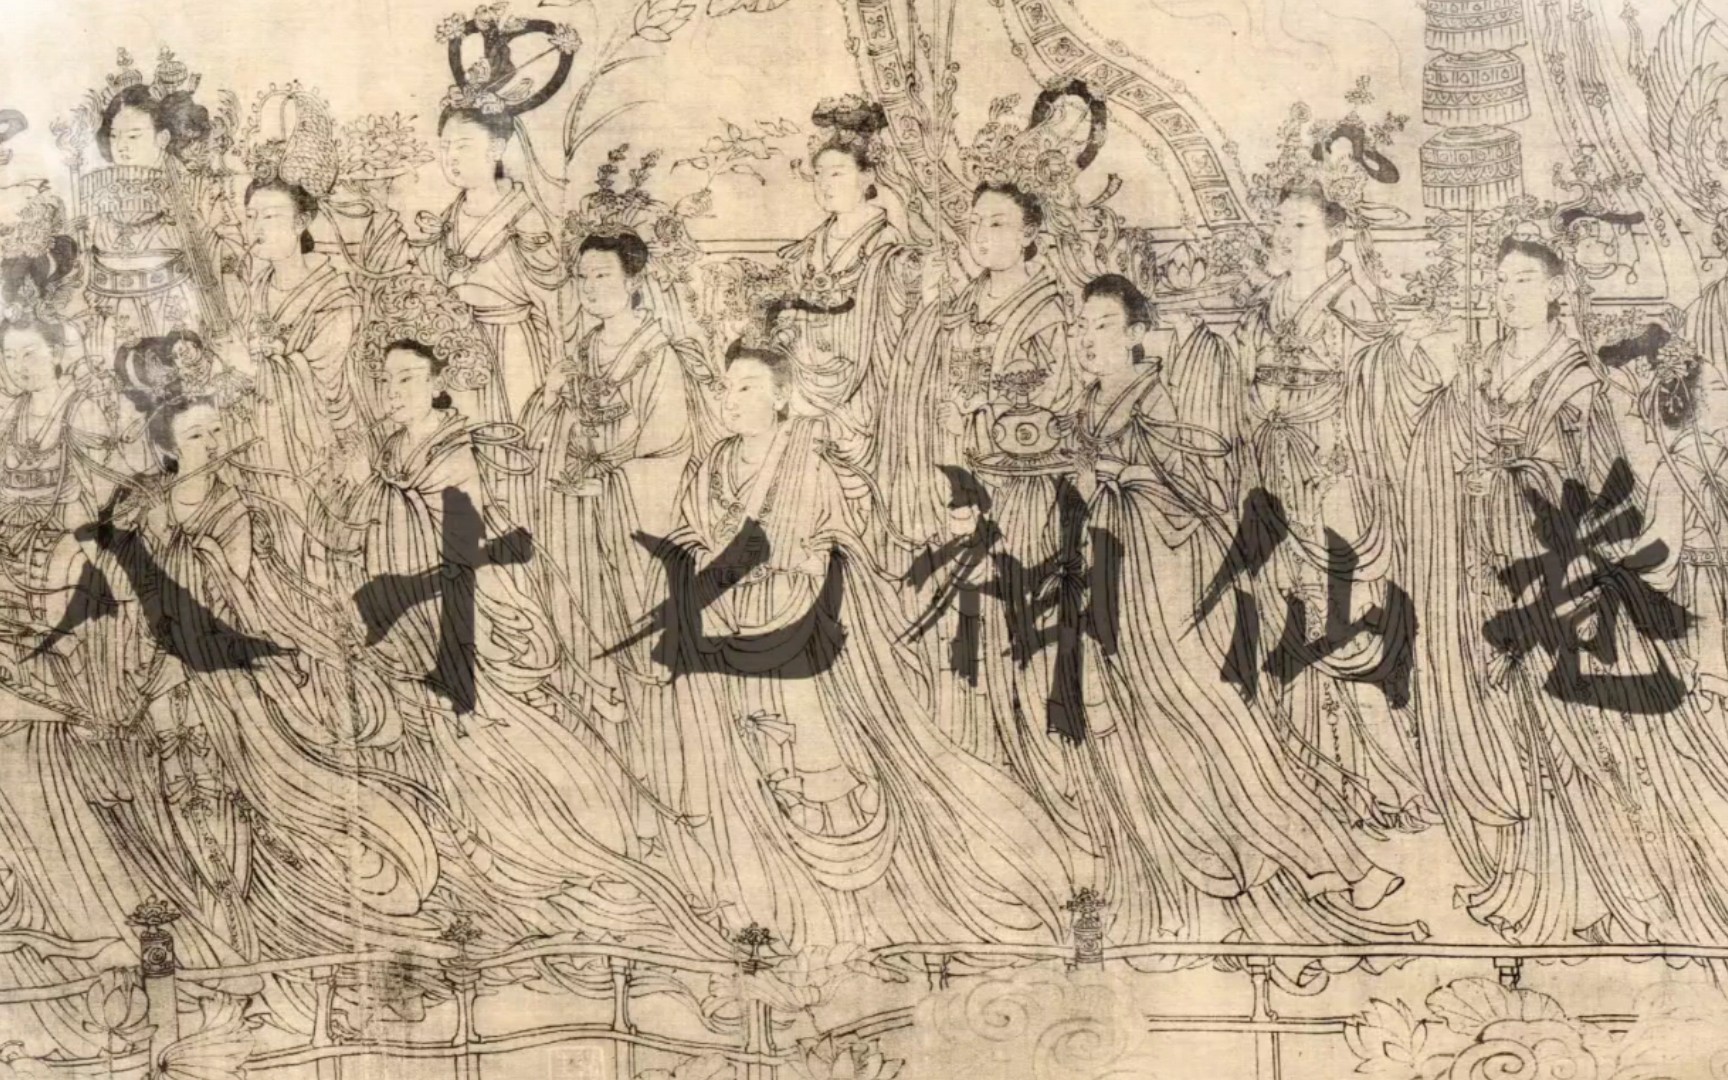 八十七神仙卷